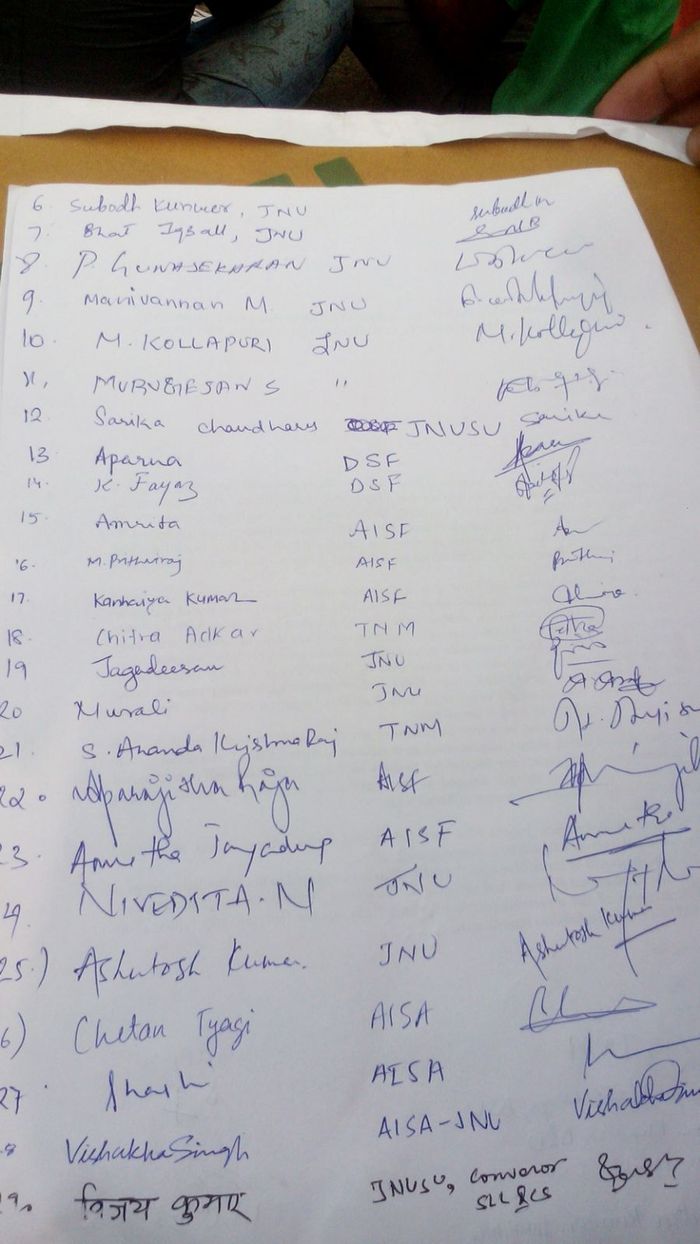 6. Subodh Kunwer, JNU Subodh
7. Bhat Iqball, JNU
8 P. GUNASEKARAN JNU
9. Manivannan M. JNU
10. M. KOLLAPURI JNU M. Kollapuri
11, MURUGESAN S "
12 Sarika chaudhary JNUSU Sarika
13. Aparna DSF
14. K. Fayaz DSF
15. Amrita AISF
16. M. Prithviraj AISF Prithvi
17. Kanhaiya Kumar AISF
18. Chitra Adkar TNM Chitra
19 Jagadeesan JNU
20 Murali JNU
21. S. Ananda Krishna Raj TNM
22. Aparajitha Raja AISF
23. Anvetha Jayadeep AISF
24. NIVEDITA. N JNU
25.) Ashutosh Kumar. JNU Ashutosh Kumar
26) Chetan Tyagi AISA
27. Shashi AISA
28 Vishakha Singh AISA-JNU Vishakha Singh
29. विजय कुमार JNUSU, Convenor
SLL & CS